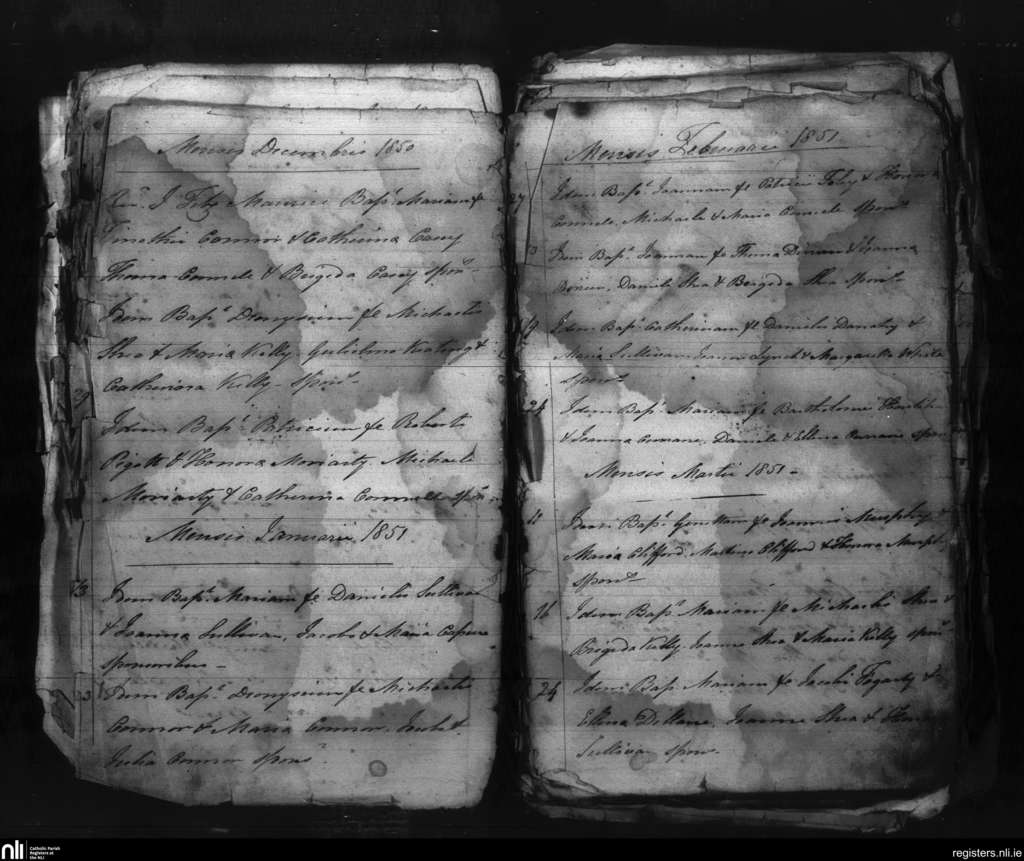 Mensis Decembris 1850
Revd. J Fitz Maurice Bapt. Mariam fe
Timothei Connor & Catherina Casey
Thoma Connell & Brigida Casey Spons.
Idem Bapt. Dionysium fe Michaelis
Shea & Maria Kelly. Gulielmo Keating &
Catherina Kelly Spons.
29
Idem Bapt. Patricium fe Roberti
Pigott & Honora Moriarty. Michaele
Moriarty & Catherina Connell Spons.
Mensis Januarii 1851
13 Idem Bapt. Mariam fe Danielis Sullivan
& Joanna Sullivan, Jacobo & Maria
Sponsoribus
23 Idem Bapt. Dionysium fe Michaelis
Connor & Maria Connor. &
Julia Connor Spons.
Mensis Februarii 1851
Idem Bapt. Joannam fe Patricii Foley & Honora
Connell, Michaele & Maria Connell Spons.
Idem Bapt. Joannam fe Thoma & Joanna
Daniele Shea & Brigida Shea Spons.
19 Idem Bapt. Catherinam fe Danielis &
Maria Sullivan Lynch & Margarita White
Spons.
24 Idem Bapt. Mariam fe Bartholomei
& Joanna Daniele & Ellena Spons.
Mensis Martii 1851
11 Idem Bapt. fe Joannis Murphy &
Maria Clifford. Clifford & Honora
Spons.
16 Idem Bapt. Mariam fe Michaelis Shea &
Brigida Kelly. Joanne Shea & Maria Kelly Spons.
24 Idem Bapt. Mariam fe Jacobi Fogarty &
Ellena Joanne Shea &
Sullivan Spons.
nli Catholic Parish
Registers at
the NLI
registers.nli.ie